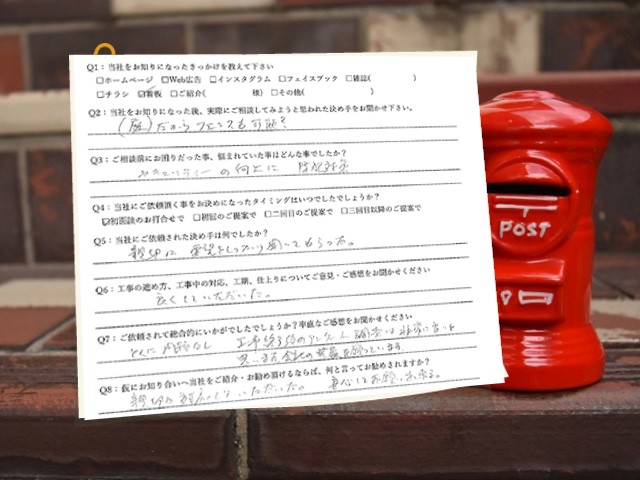 Q1：当社をお知りになったきっかけを教えて下さい
□ホームページ □Web広告 □インスタグラム □フェイスブック □雑誌( )
□チラシ ☑看板 □ご紹介( 様) □その他( )
Q2：当社をお知りになった後、実際にご相談してみようと思われた決め手をお聞かせ下さい。
だからフェンスも可能？
Q3：ご相談前にお困りだった事、悩まれていた事はどんな事でしたか？
の向上に 防犯対策
Q4：当社にご依頼頂く事をお決めになったタイミングはいつでしたでしょうか？
☑初面談のお打合せで □初回のご提案で □二回目のご提案で □三回目以降のご提案で
Q5：当社にご依頼された決め手は何でしたか？
親切に 要望をしっかり聞いてもらった。
Q6：工事の進め方、工事中の対応、工期、仕上りについてご意見・ご感想をお聞かせください
良くしていただいた。
Q7：ご依頼されて総合的にいかがでしたでしょうか？率直なご感想をお聞かせください
とくに問題なし 工事終了後のアンケート調査は非常に良いと
思います
Q8：仮にお知り合いへ当社をご紹介・お勧め頂けるならば、何と言ってお勧めされますか？
親切な対応をしていただいた。 安心してお願い出来る。
POST